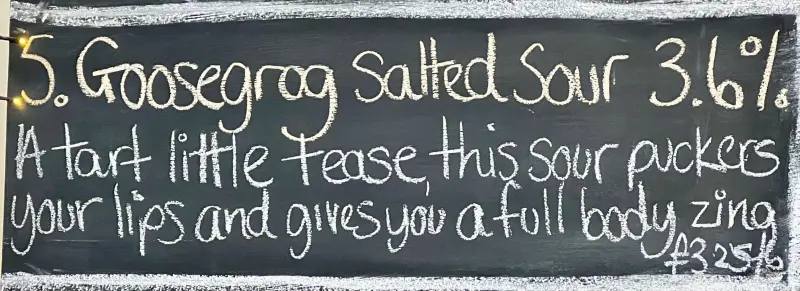 5. Goosegrog Salted Sour 3.6%
A tart little tease, this sour puckers
your lips and gives you a full body zing
£3.25